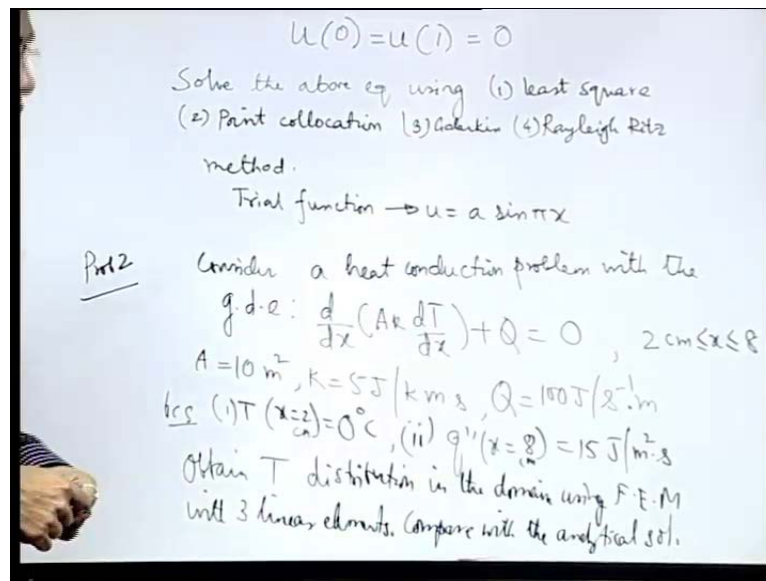 u(0) = u(1) = 0
Solve the above eq using (1) least square
(2) Point collocation (3) Galerkin (4) Rayleigh Ritz
method.
Trial function → u = a sin πx
Prob 2 Consider a heat conduction problem with the
g.d.e: d/dx (Ak dT/dx) + Q = 0, 2 cm ≤ x ≤ 8
A = 10 m², K = 5 J/k m s, Q = 100 J/s⁻¹.m
bcs (i) T (x=2 cm) = 0°C, (ii) q'' (x = 8 cm) = 15 J/m².s
Obtain T distribution in the domain using F.E.M
with 3 linear elements. Compare with the analytical sol.